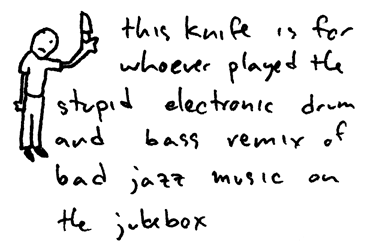 this knife is for
whoever played the
stupid electronic drum
and bass remix of
bad jazz music on
the jukebox